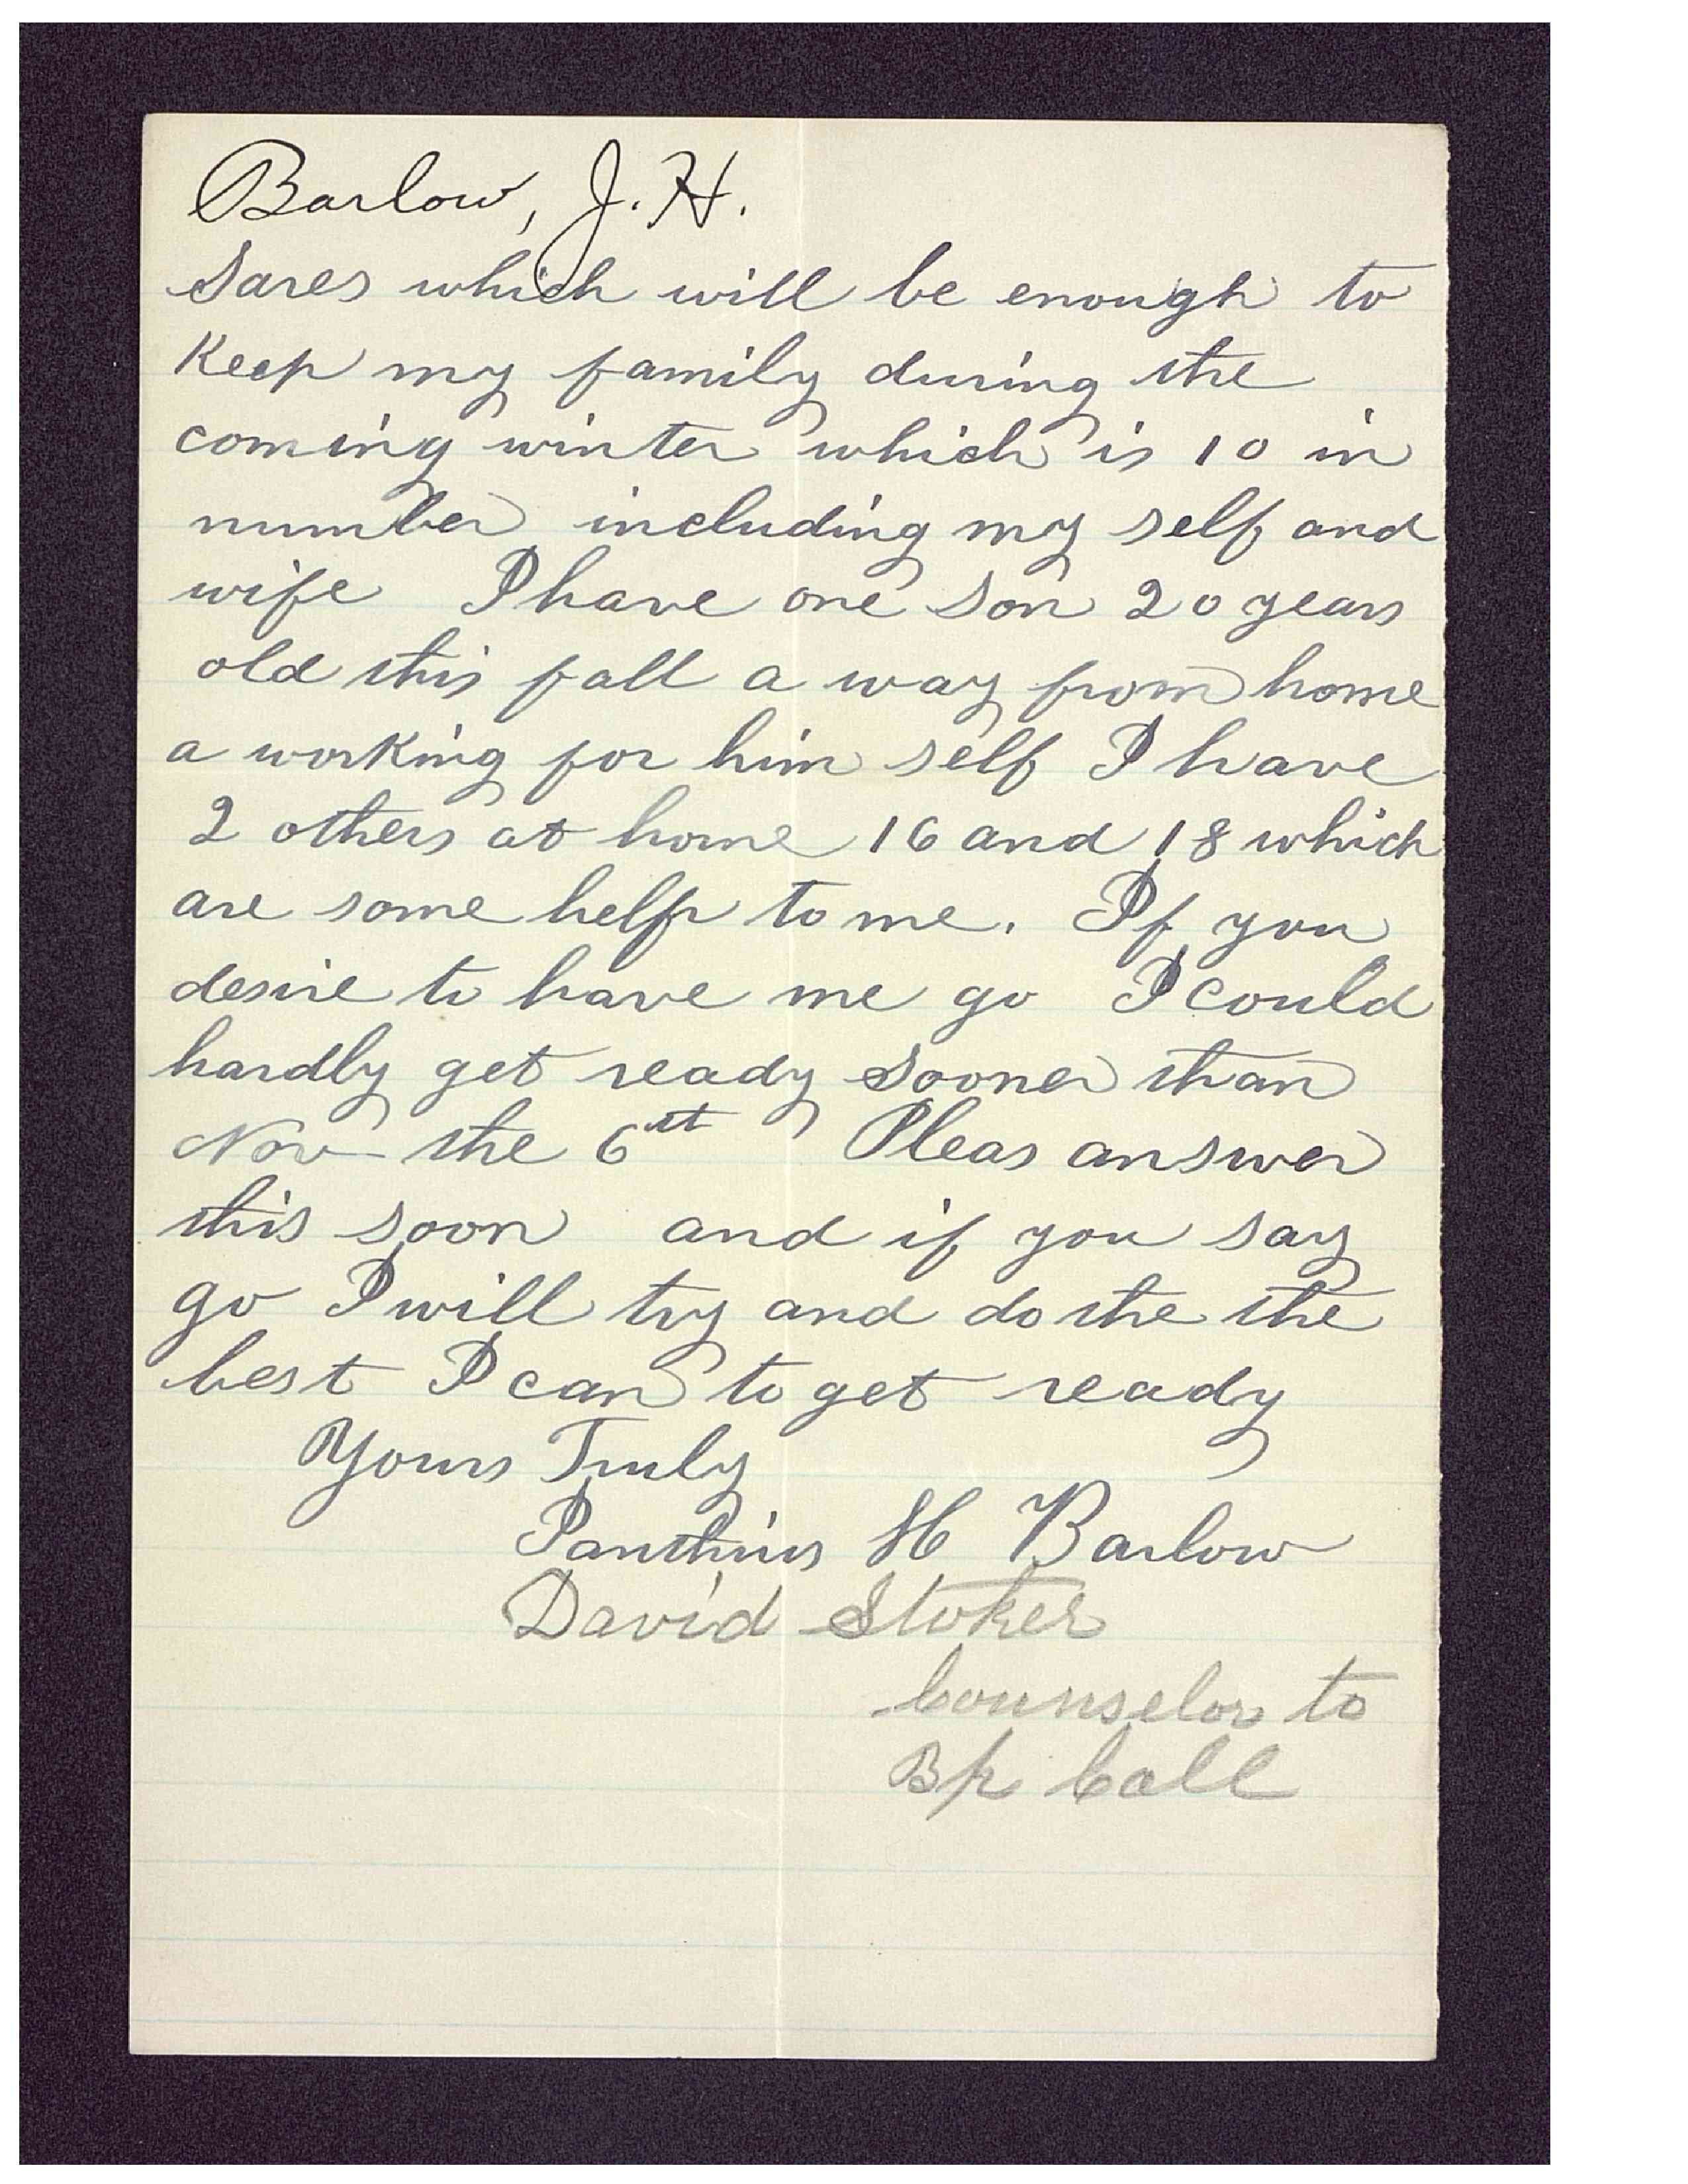 Barlow, J. H.
Sares which will be enough to
Keep my family during the
coming winter which is 10 in
number including my self and
wife I have one Son 20 years
old this fall a way from home
a working for him self I have
2 others at home 16 and 18 which
are some help to me. If you
desire to have me go I could
hardly get ready Sooner than
Nov the 6st Pleas answer
this soon and if you say
go I will try and do the the
best I can to get ready
Yours Truly
H Barlow
David Stoker
Counselor to
Bp Call